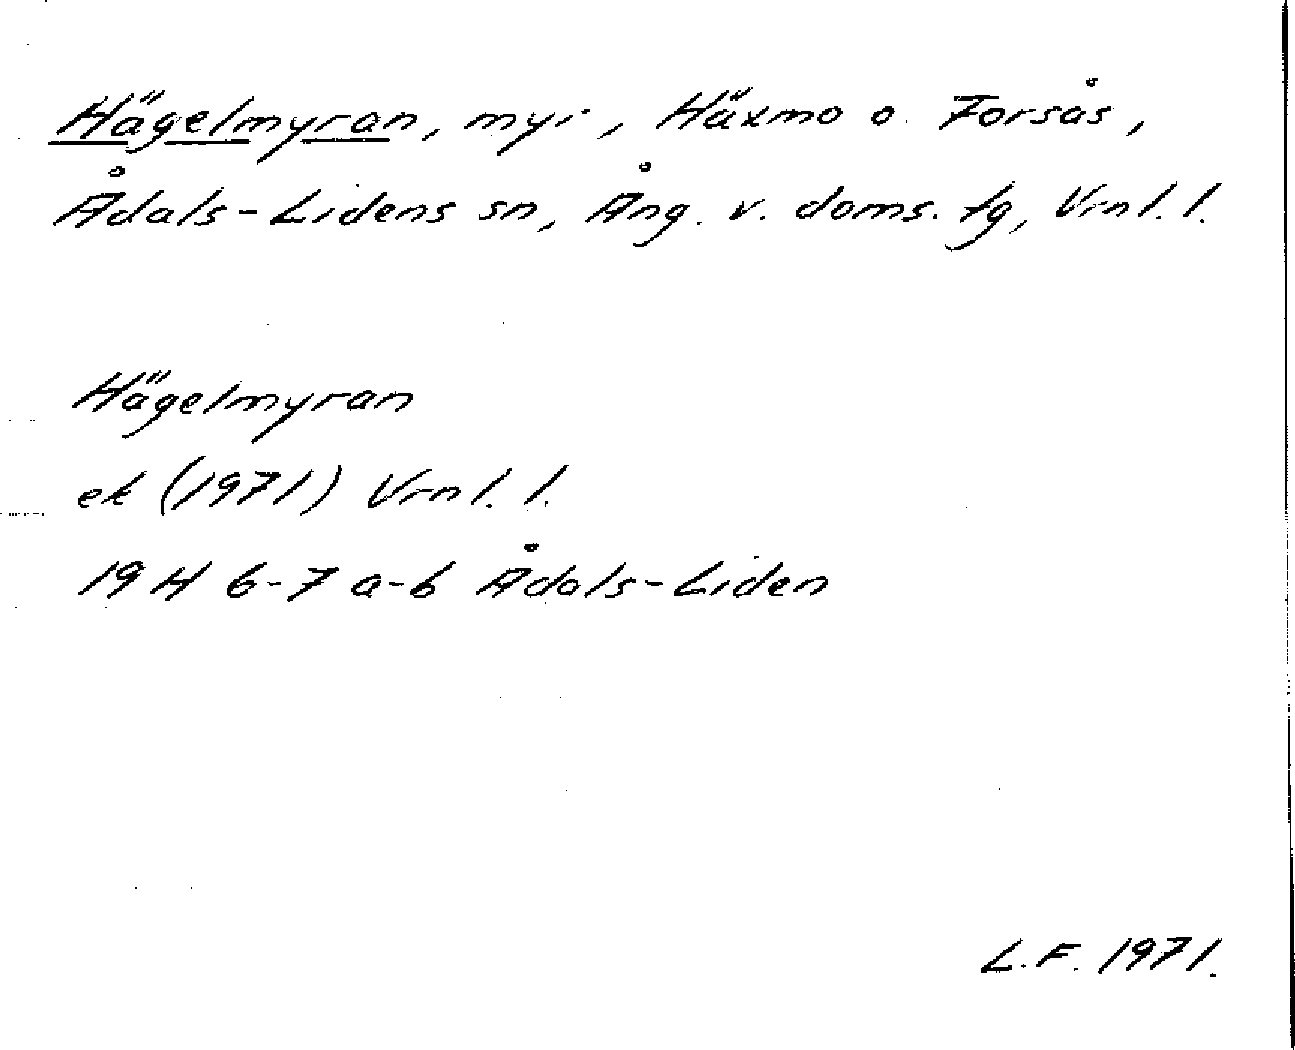 Hägelmyran, myr, Häxmo o. Forsås,
Ådals-Lidens sn, Ång. v. doms. fg, Vrnl. l.
Hägelmyran
ek (1971) Vrnl. l.
19 H 6-7 a-b Ådals-Liden
L.F. 1971.